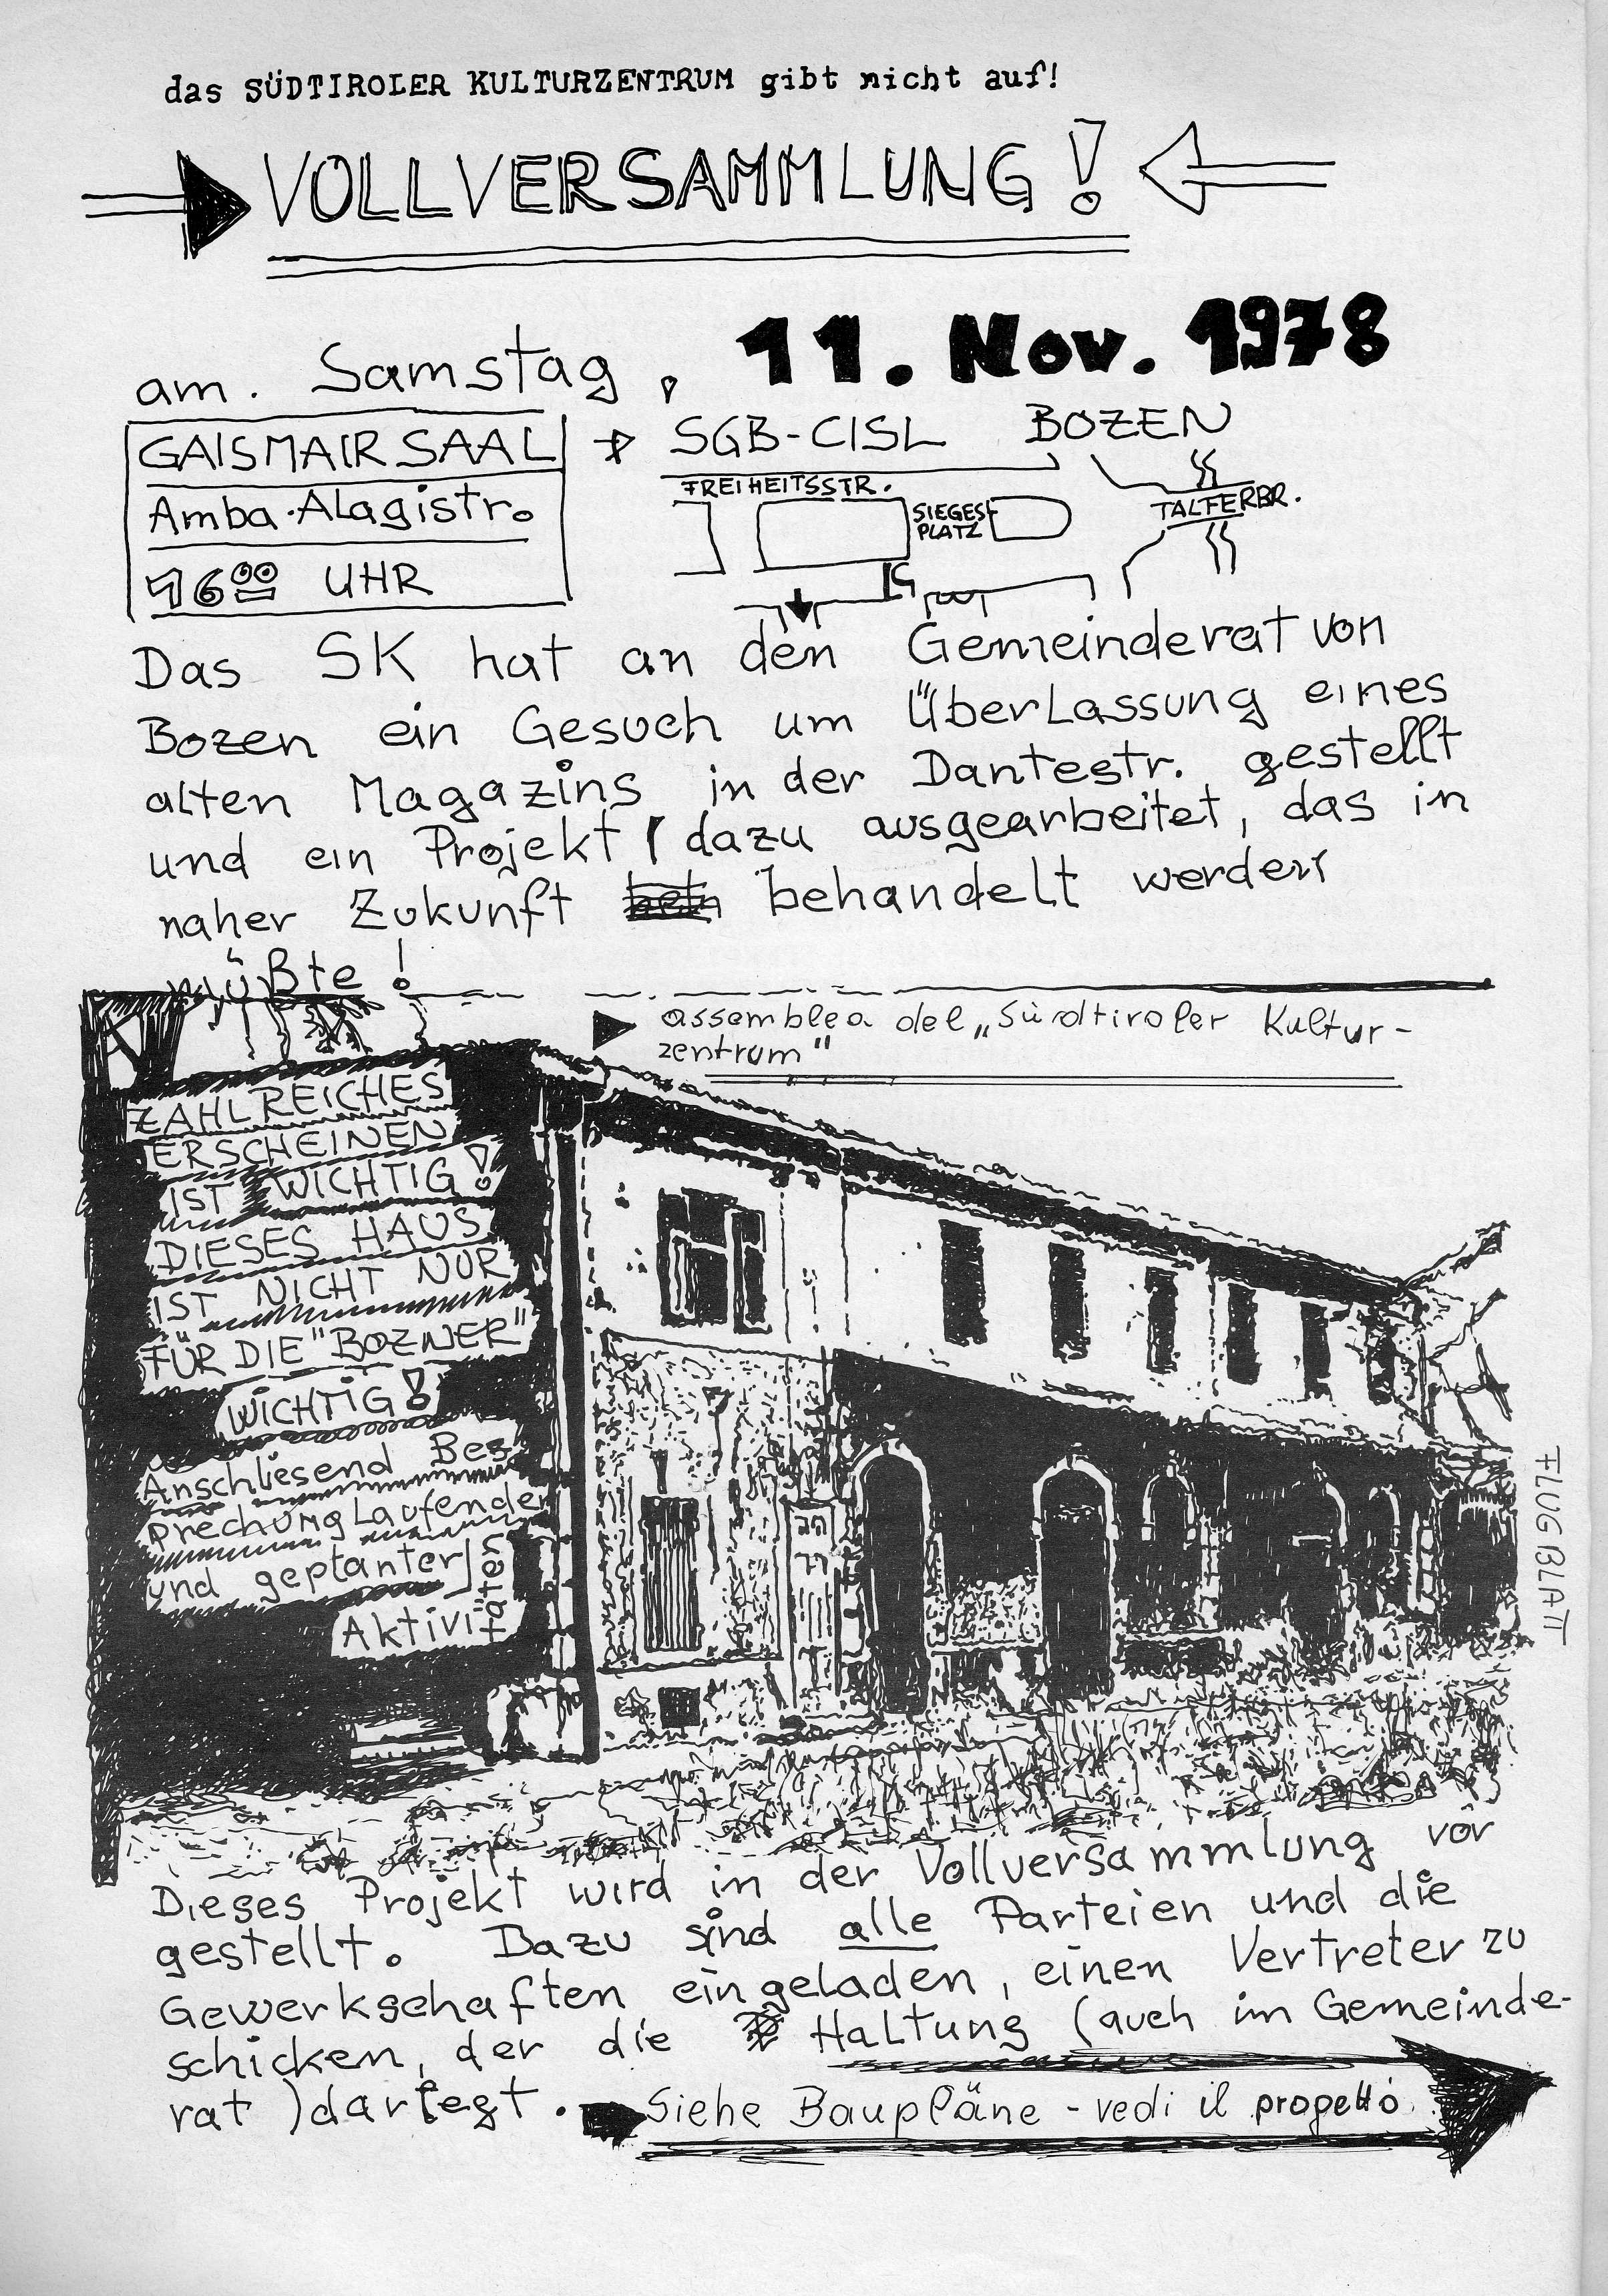 das SÜDTIROLER KULTURZENTRUM gibt nicht auf!
VOLLVERSAMMLUNG!
am. Samstag, 11. Nov. 1978
GAISMAIR SAAL
SGB-CISL BOZEN
Amba-Alagistr.
16⁰⁰ UHR
FREIHEITSSTR.
SIEGES
PLATZ
TALFERBR.
Das SK hat an den Gemeinderat von
Bozen ein Gesuch um Überlassung eines
alten Magazins in der Dantestr. gestellt
und ein Projekt dazu ausgearbeitet, das in
naher Zukunft behandelt werden
müßte!
assemblea del „Südtiroler Kultur-
zentrum"
ZAHLREICHES
ERSCHEINEN
IST WICHTIG!
DIESES HAUS
IST NICHT NUR
FÜR DIE "BOZNER"
WICHTIG!
Anschliesend Bes-
prechung Laufender
und geplanter
Aktivitäten
FLUGBLATT
Dieses Projekt wird in der Vollversammlung vor
gestellt. Dazu sind alle Parteien und die
Gewerkschaften eingeladen, einen Vertreter zu
schicken, der die Haltung (auch im Gemeinde-
rat) darlegt.
Siehe Baupläne - vedi il progetto